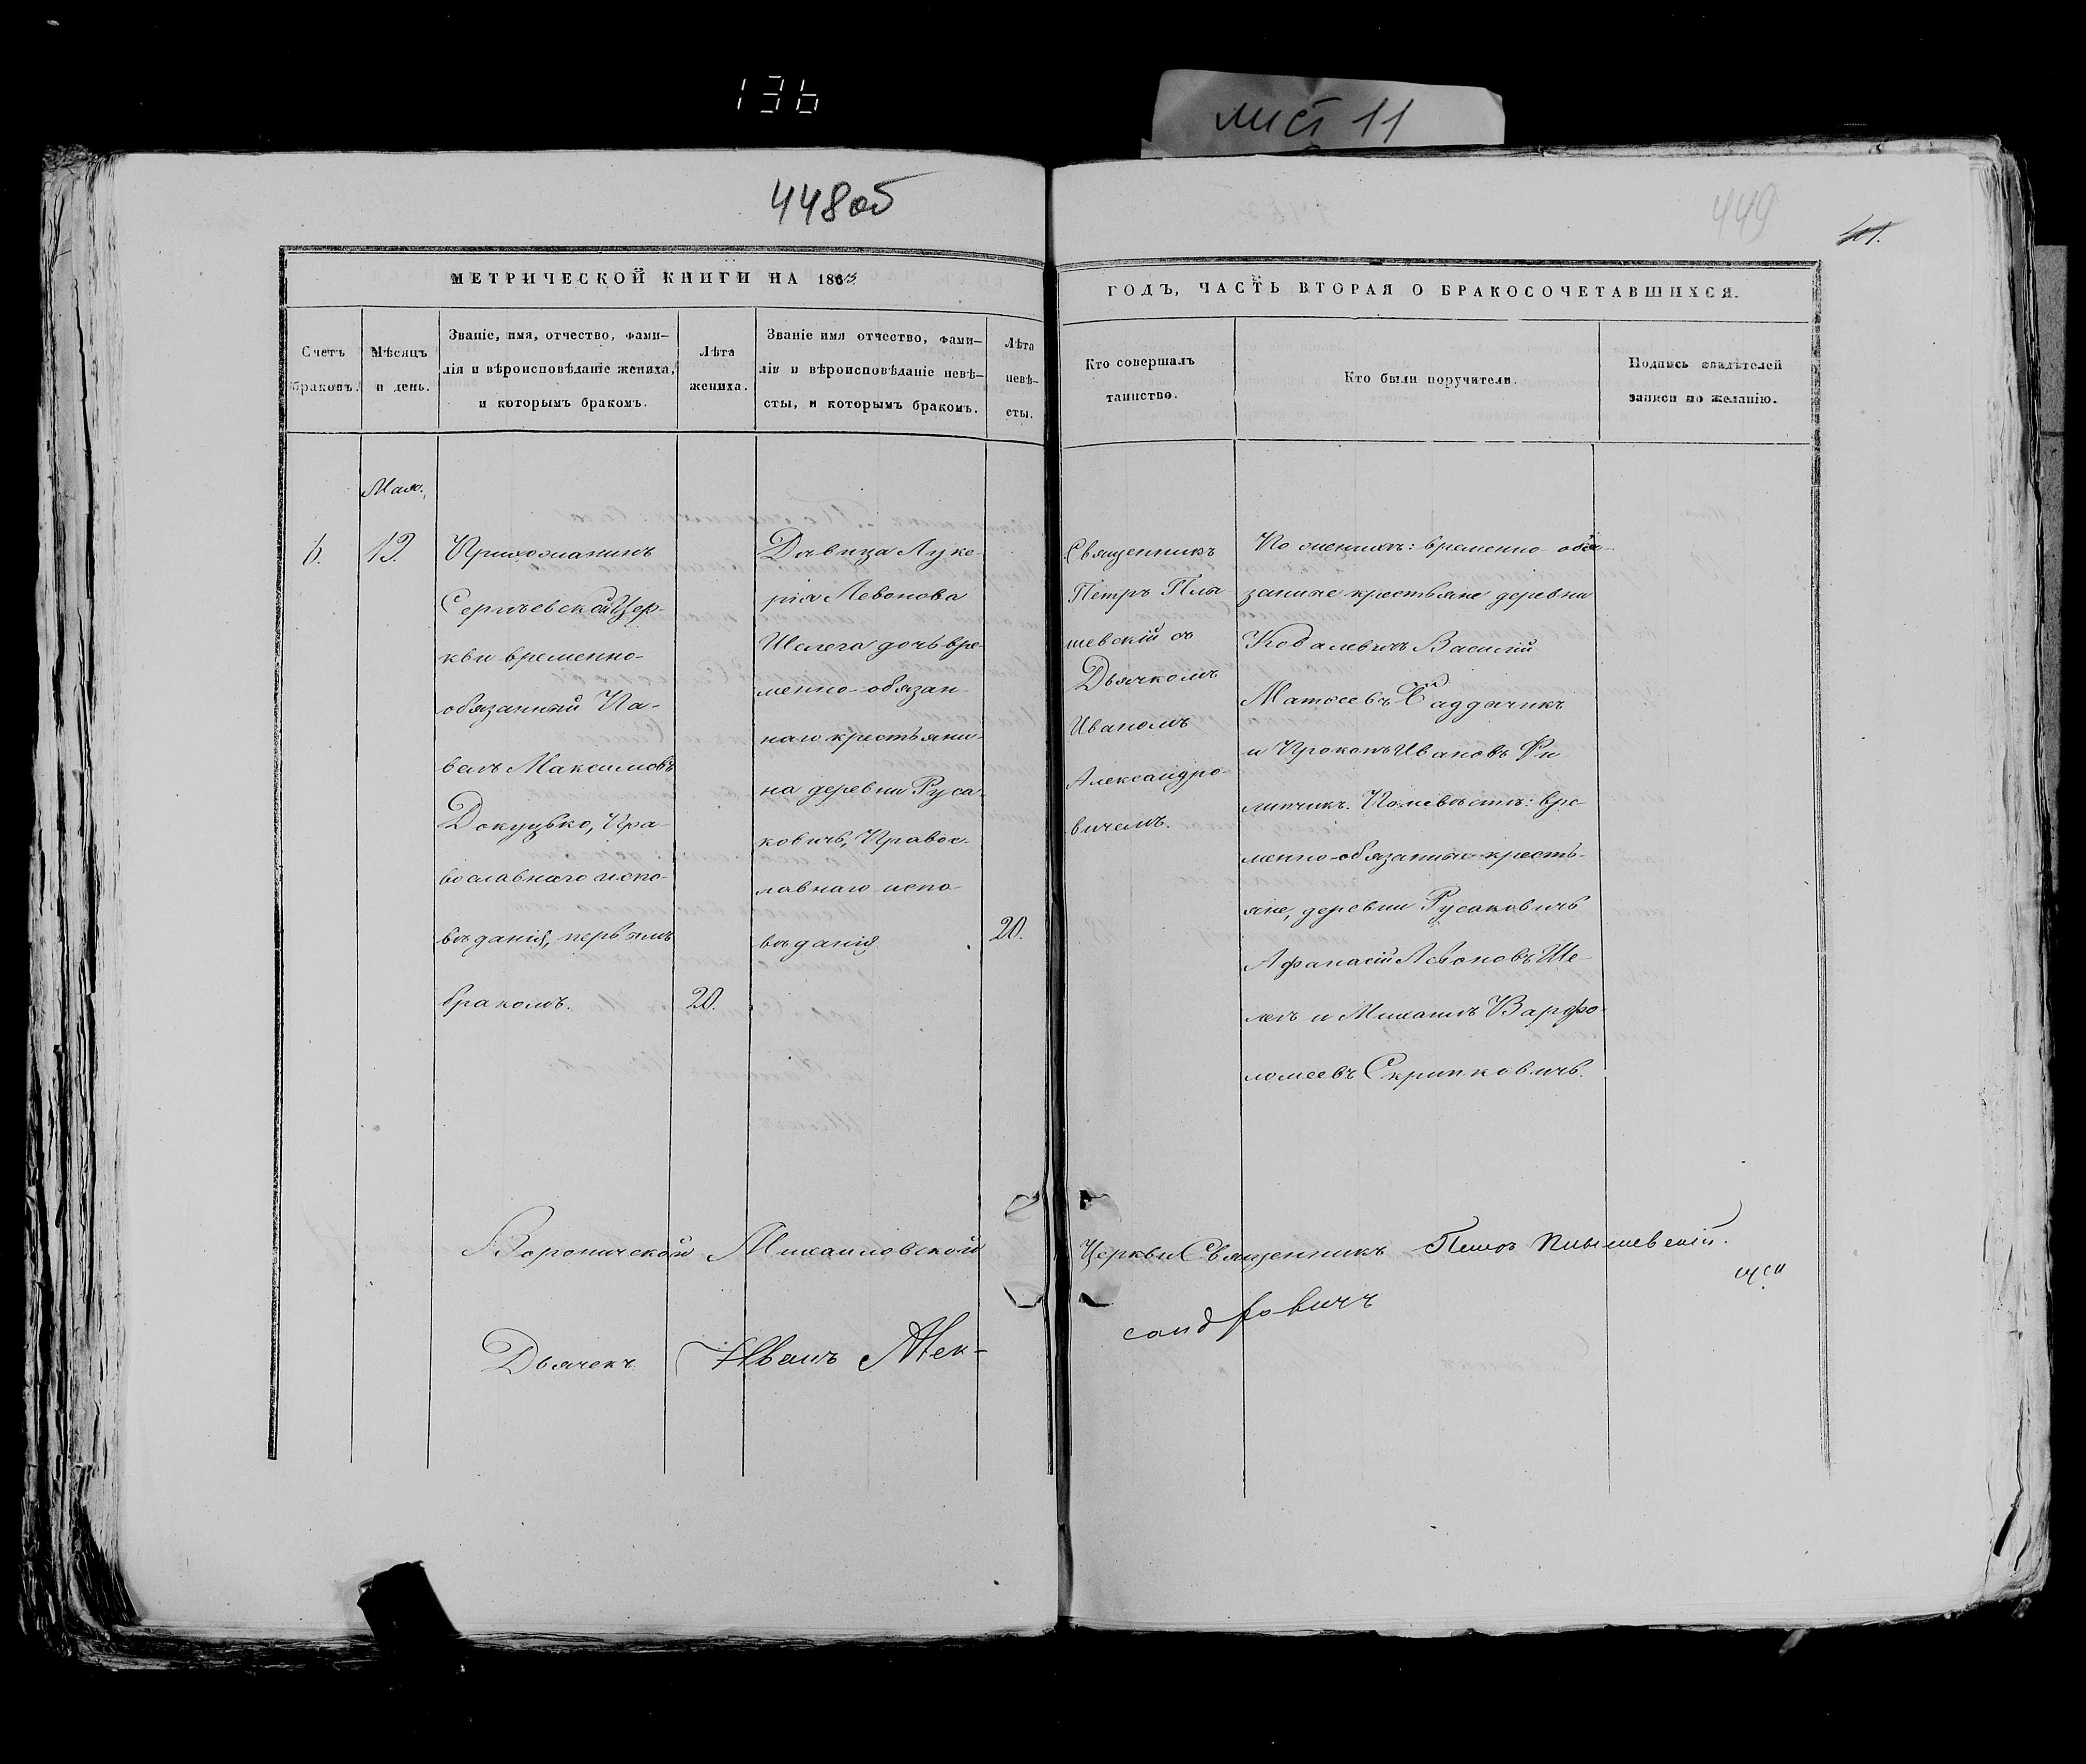 136
лист 11
448об
449
41.
МЕТРИЧЕСКОЙ КНИГИ НА 1863
ГОДЪ, ЧАСТЬ ВТОРАЯ О БРАКОСОЧЕТАВШИХСЯ.
Счетъ
браковъ.
Мѣсяцъ
и день.
Званіе, имя, отчество, фами-
лія и вѣроисповѣданіе жениха,
и которымъ бракомъ.
Лѣта
жениха.
Званіе имя отчество, фами-
лія и вѣроисповѣданіе невѣ-
сты, и которымъ бракомъ.
Лѣта
невѣ-
сты.
Кто совершалъ
таинство.
Кто были поручители.
Подпись свидѣтелей
записи по желанію.
6.
Мая.
13.
Прихожанинъ
Сергѣевской Цер-
кви временно-
обязанный Па-
велъ Максимовъ
Докуцько, Пра-
вославнаго испо-
вѣданія, первымъ
бракомъ.
20.
Дѣвица Луке-
рія Левонова
Шелега дочь вре-
менно-обязан-
наго крестьяни-
на деревни Руса-
ковичъ, Правос-
лавнаго испо-
вѣданія
20.
Священникъ
Петръ Плы
шевскій съ
Дьячкомъ
Иваномъ
Александро-
вичемъ.
По женихѣ: временно-обя-
занные крестьяне деревни
Ковалевичъ Василій
Матѳеевъ
и Прокопъ Ивановъ Фи
липчикъ. По невѣстѣ: вре-
менно-обязанные кресть-
яне, деревни Русаковичъ
Афанасій Левоновъ Ше-
легъ и Михаилъ Варфо-
ломеевъ Скрипковичъ.
Вороничской Михаиловской Церкви Священникъ Петръ Плышевскій.
Дьячекъ Иванъ Алек-
сандровичъ